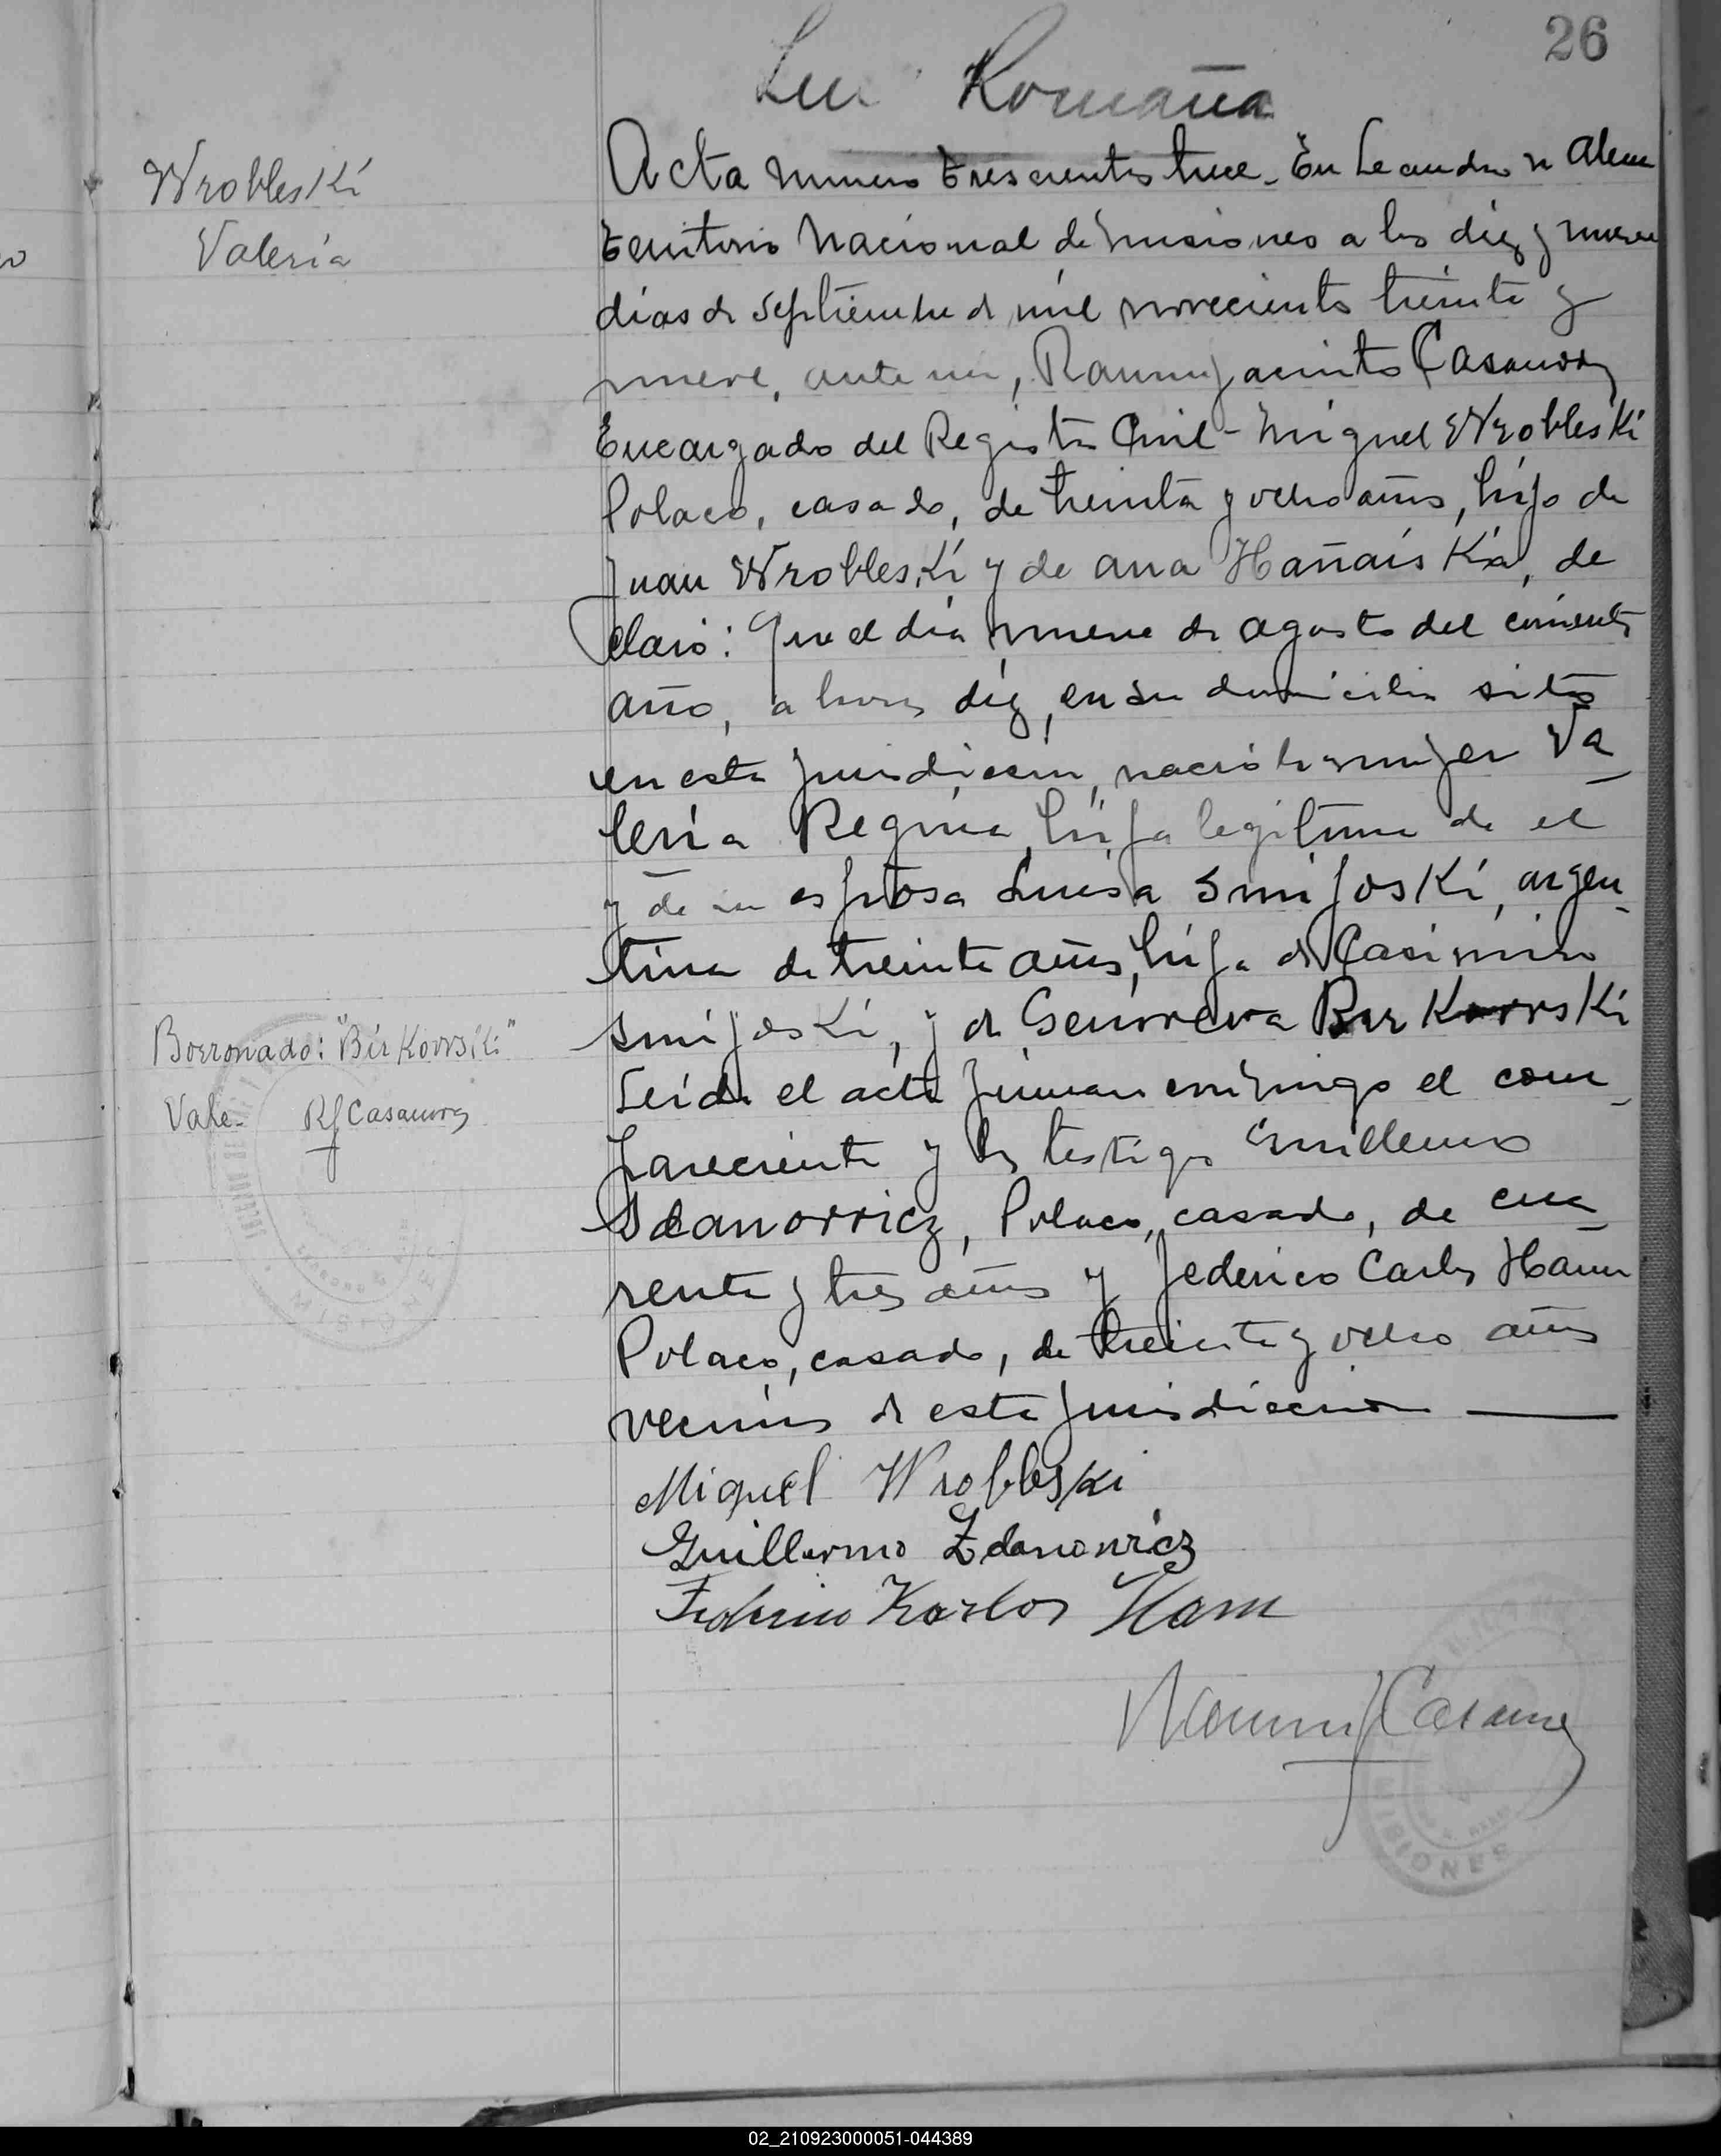 26
Romaña
Wrobleski
Valeria
Acta numero trescientos trece. En Leandro N Alem
territorio Nacional de Misiones a los diez y nueve
dias de Septiembre de mil novecientos treinta y
nueve, ante mi, Ramon Jacinto Casanova
Encargado del Registro Civil - Miguel Wrobleski
Polaco, casado, de treinta y ocho años, hijo de
Juan Wrobleski y de Ana Hañaiska, de
claró: Que el dia nueve de agosto del corriente
año, a horas diez, en su domicilio sito
en esta jurisdiccion, nació la mujer Va
leria Regina, hija legitima de el
y de su esposa Luisa Smijoski, argen
tina de treinta años, hija de Casimiro
Smijoski, y de Genoveva Birkovvski
Borronado: "Birkovvski"
Vale- RJCasanova
Leida el acta firman conmigo el com
pareciente y los testigos Guillermo
Sdanovvicz, Polaco, casado, de cua
renta y tres años y Federico Carlos Hamm
Polaco, casado, de treinta y ocho años
vecinos de esta jurisdiccion
Miguel Wrobleski
Guillermo Zdanowicz
Federico Karlos Hamm
Ramon J Casanova
MISIONES
02_210923000051-044389